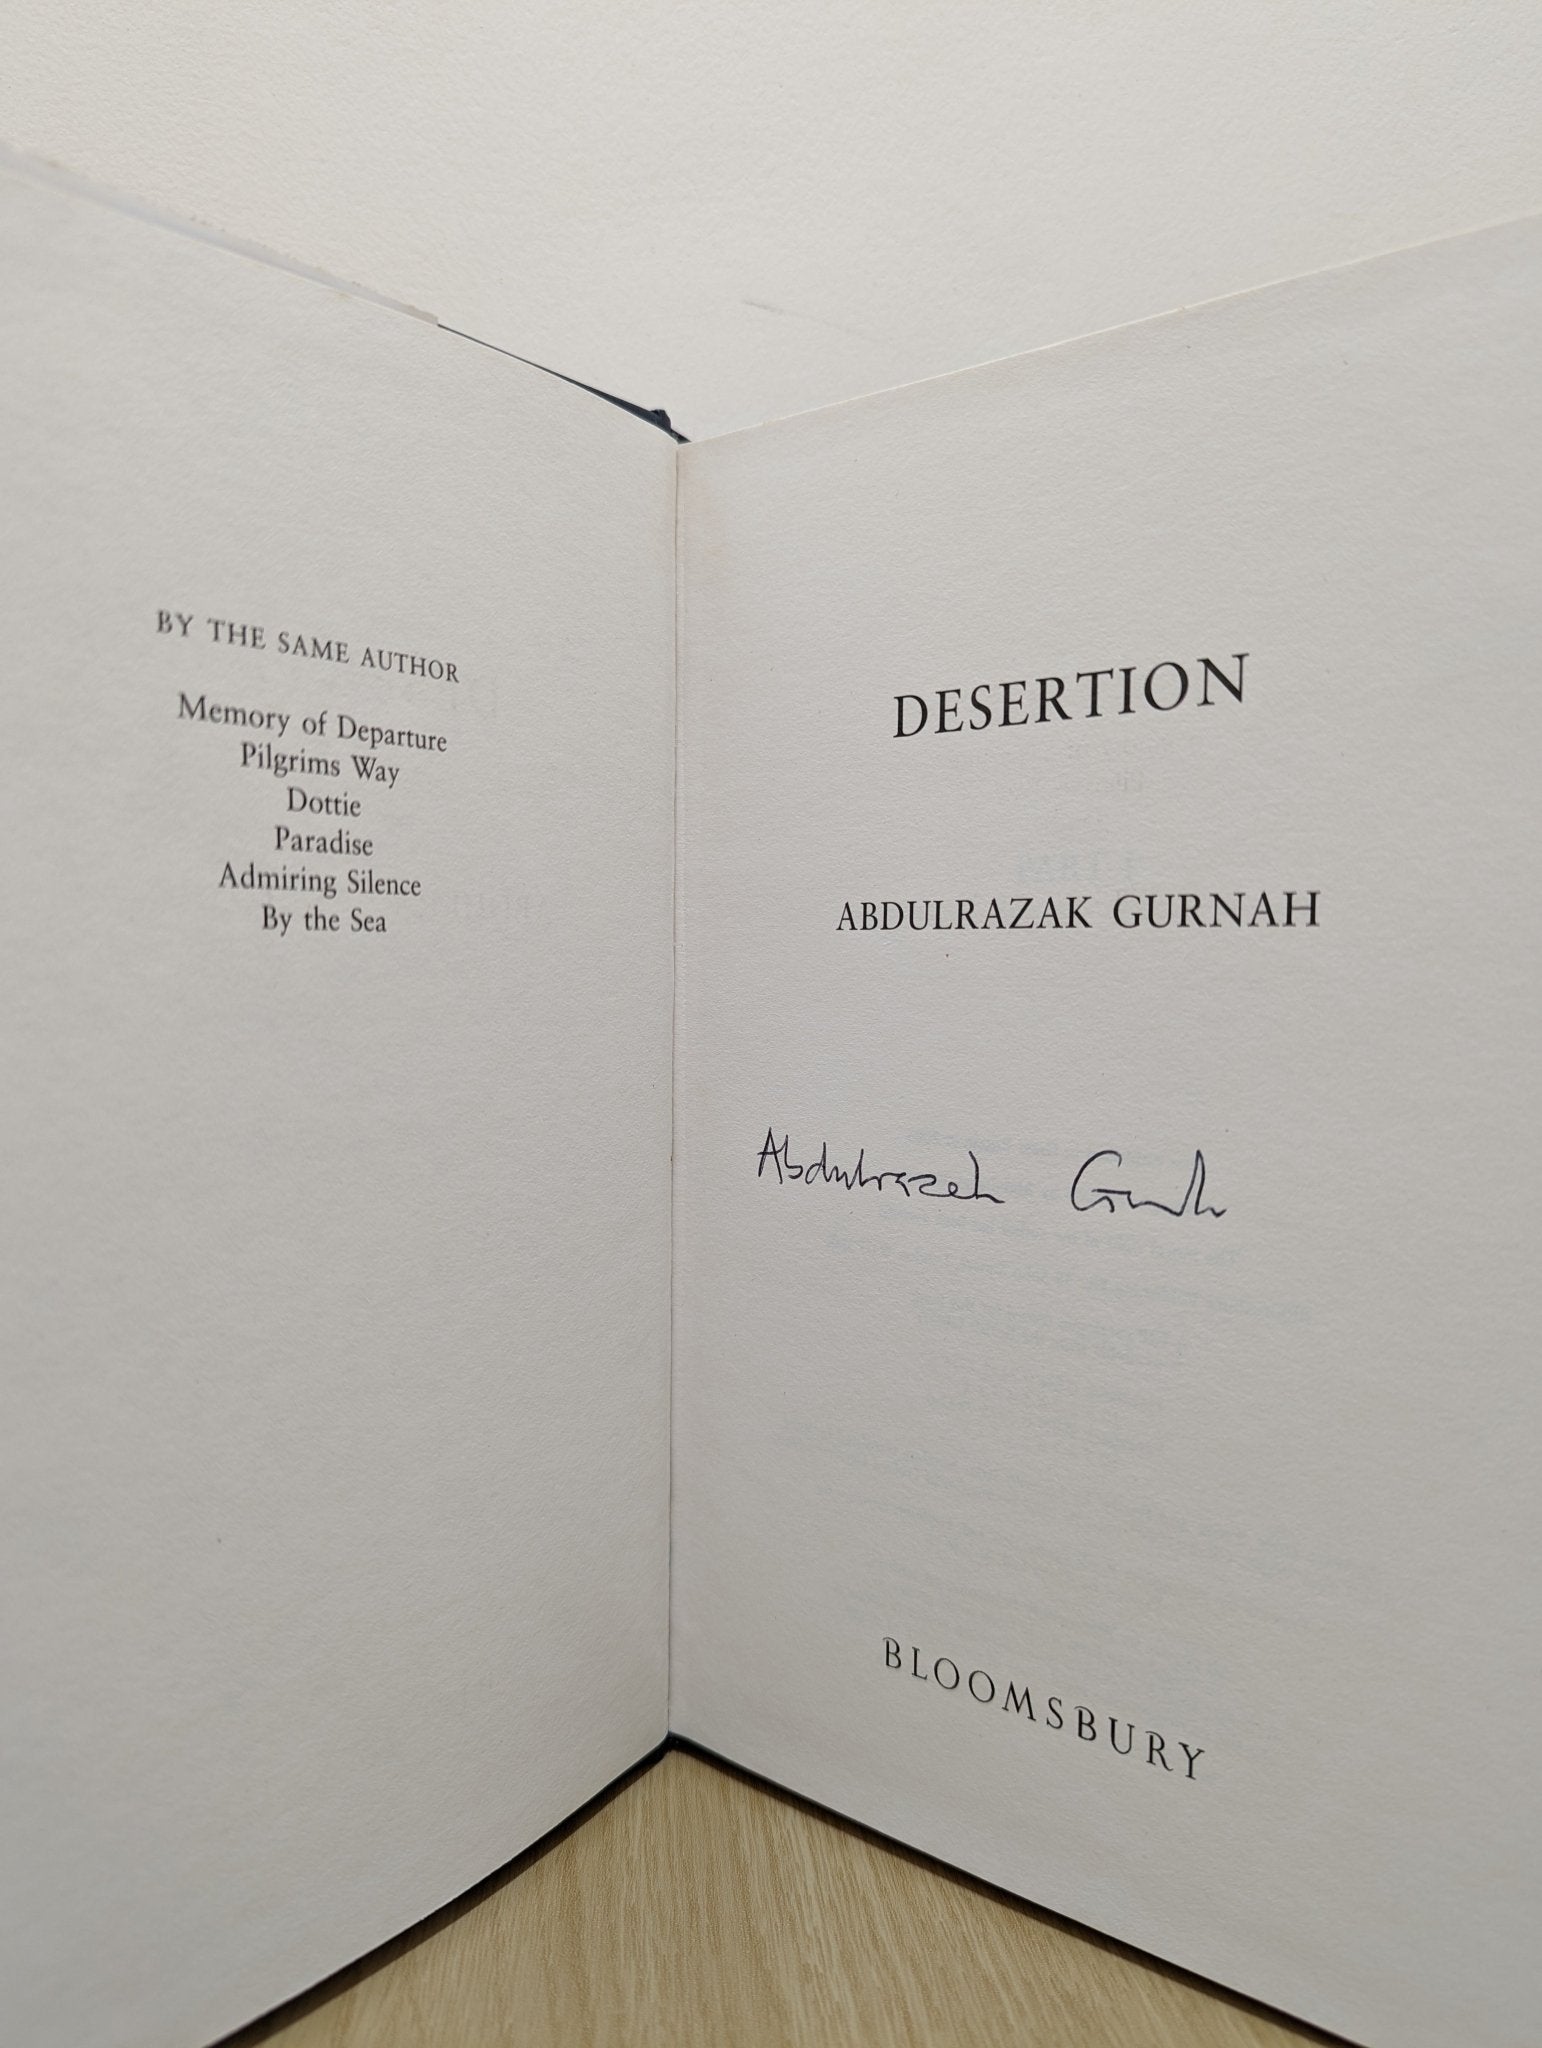 BY THE SAME AUTHOR
Memory of Departure
Pilgrims Way
Dottie
Paradise
Admiring Silence
By the Sea
DESERTION
ABDULRAZAK GURNAH
Abdulrazak Gurnah
BLOOMSBURY